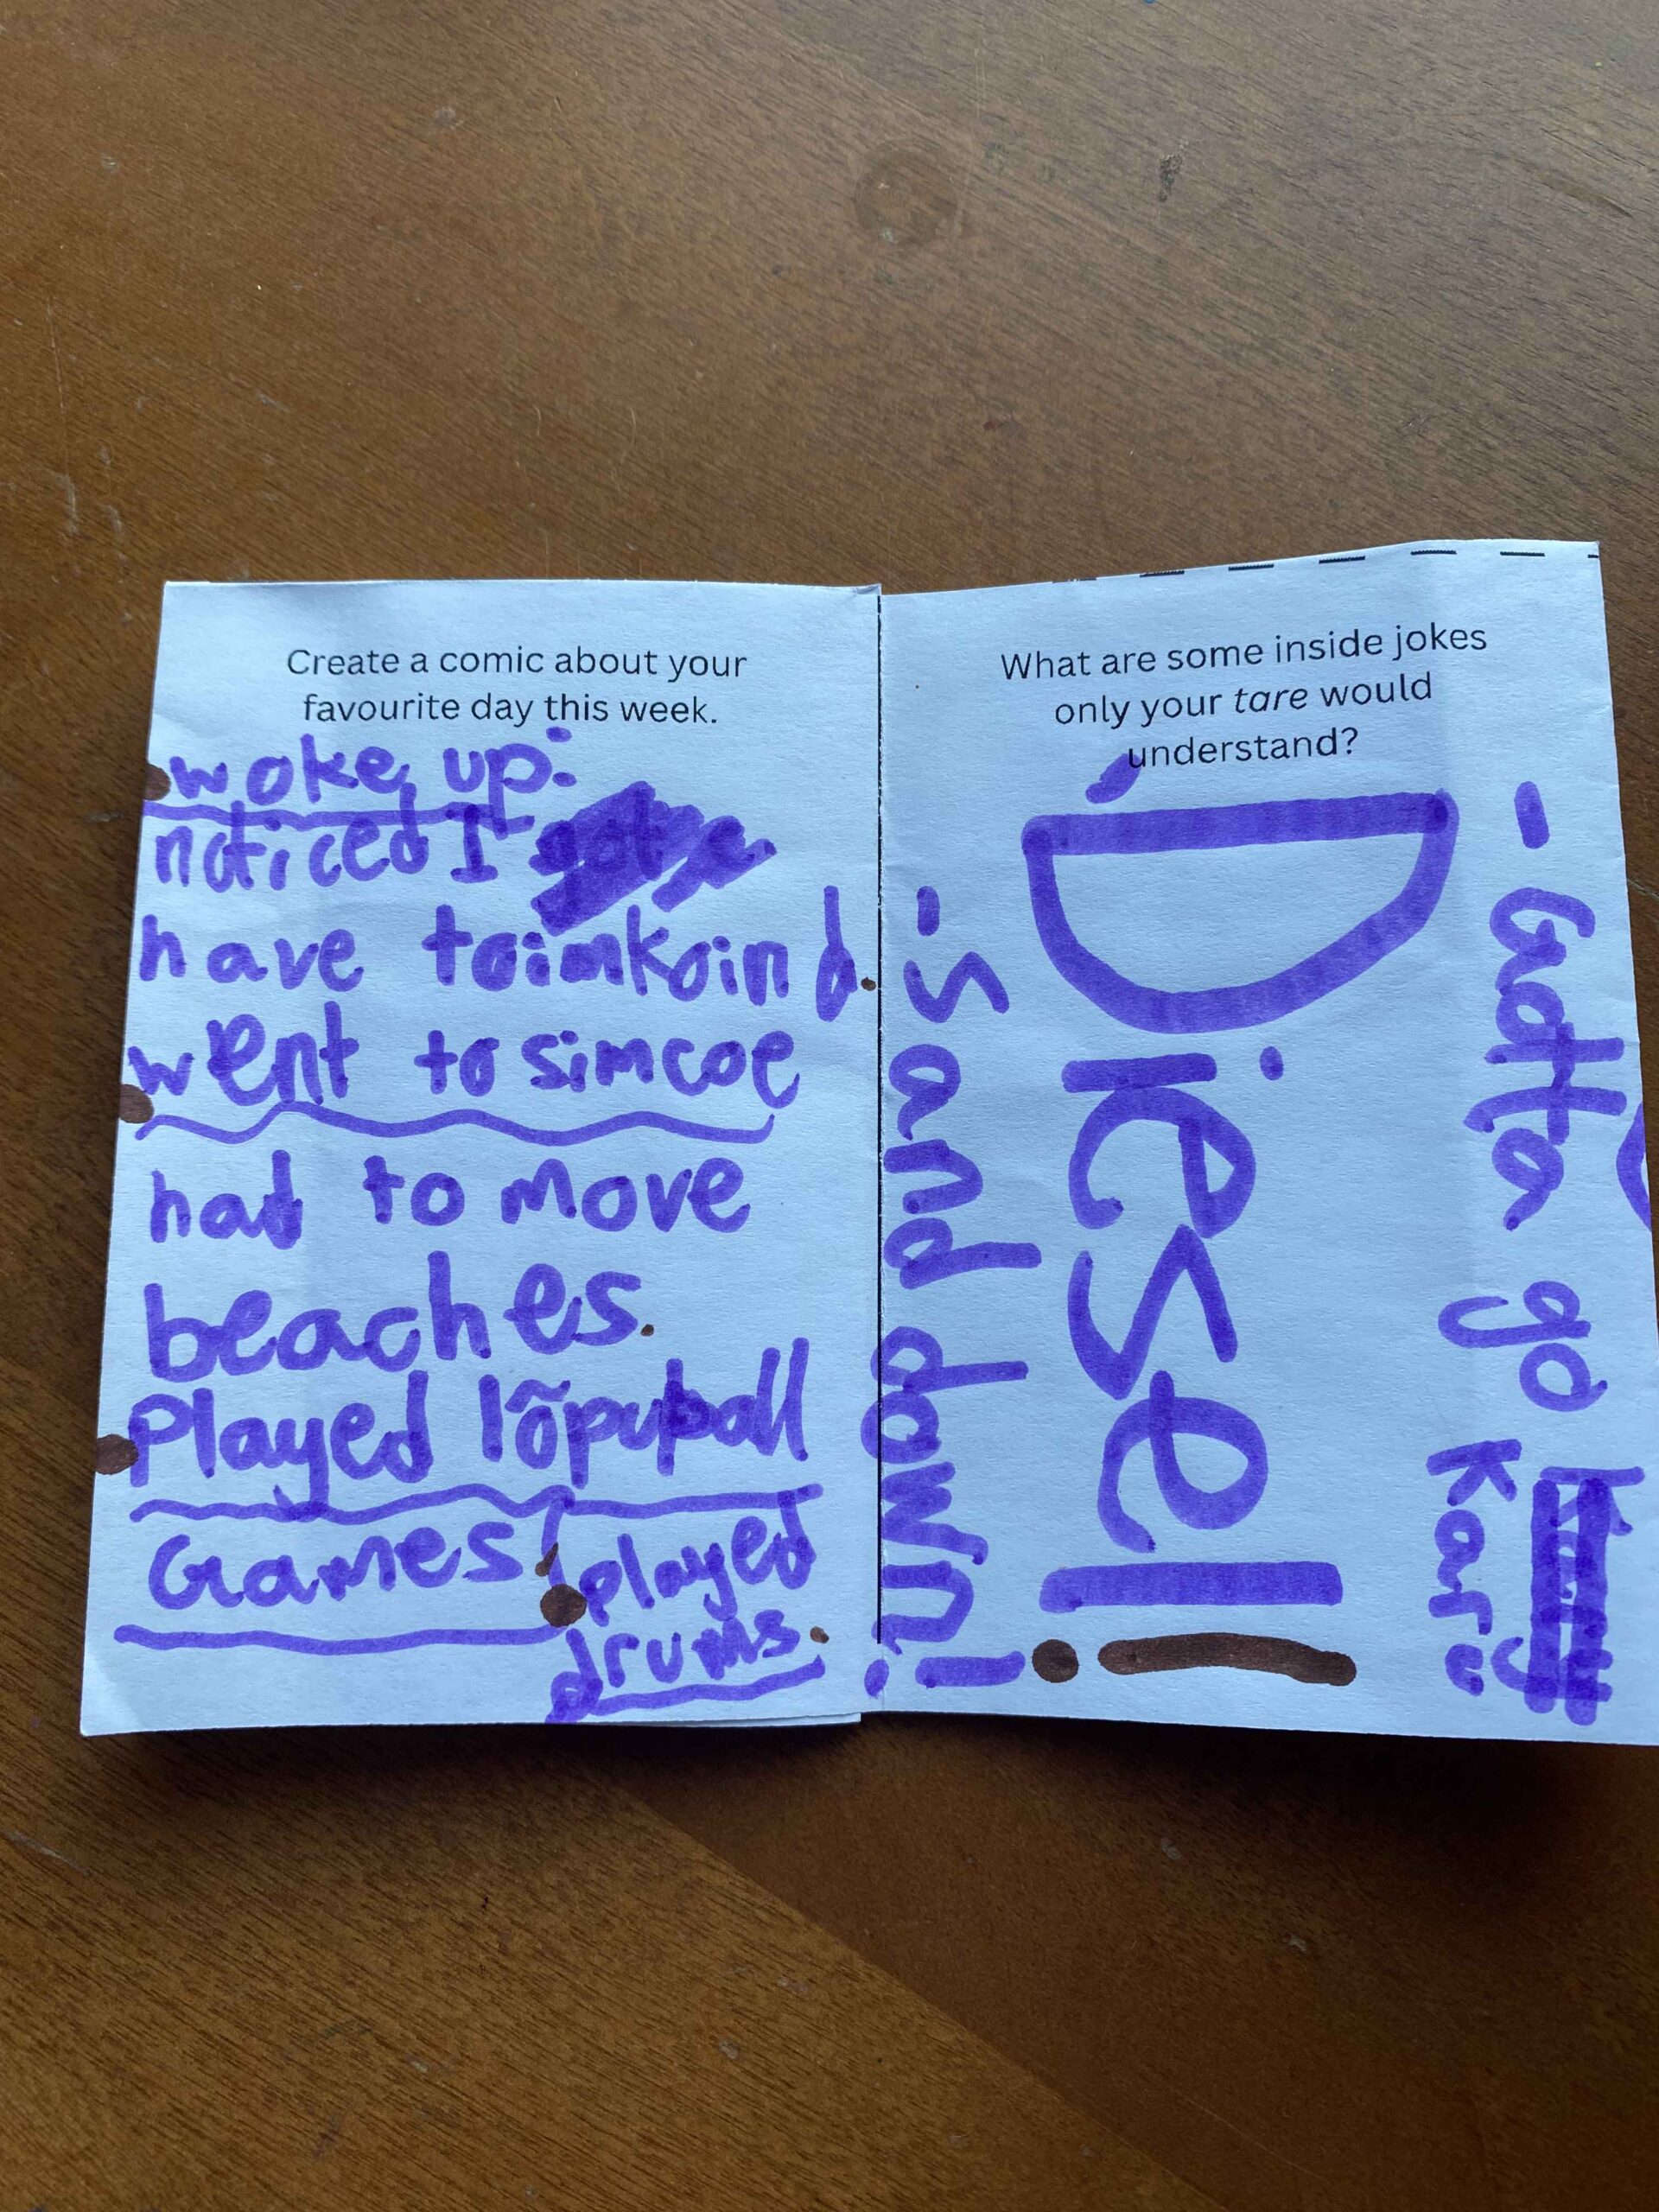 Create a comic about your
favourite day this week.
woke up:
noticed I
have toimkoind.
went to simcoe
had to move
beaches.
Played lõpuball
Games!
played
drums.
What are some inside jokes
only your tare would
understand?
- Gotta go
Karu
- Diesel!
- Sand down!